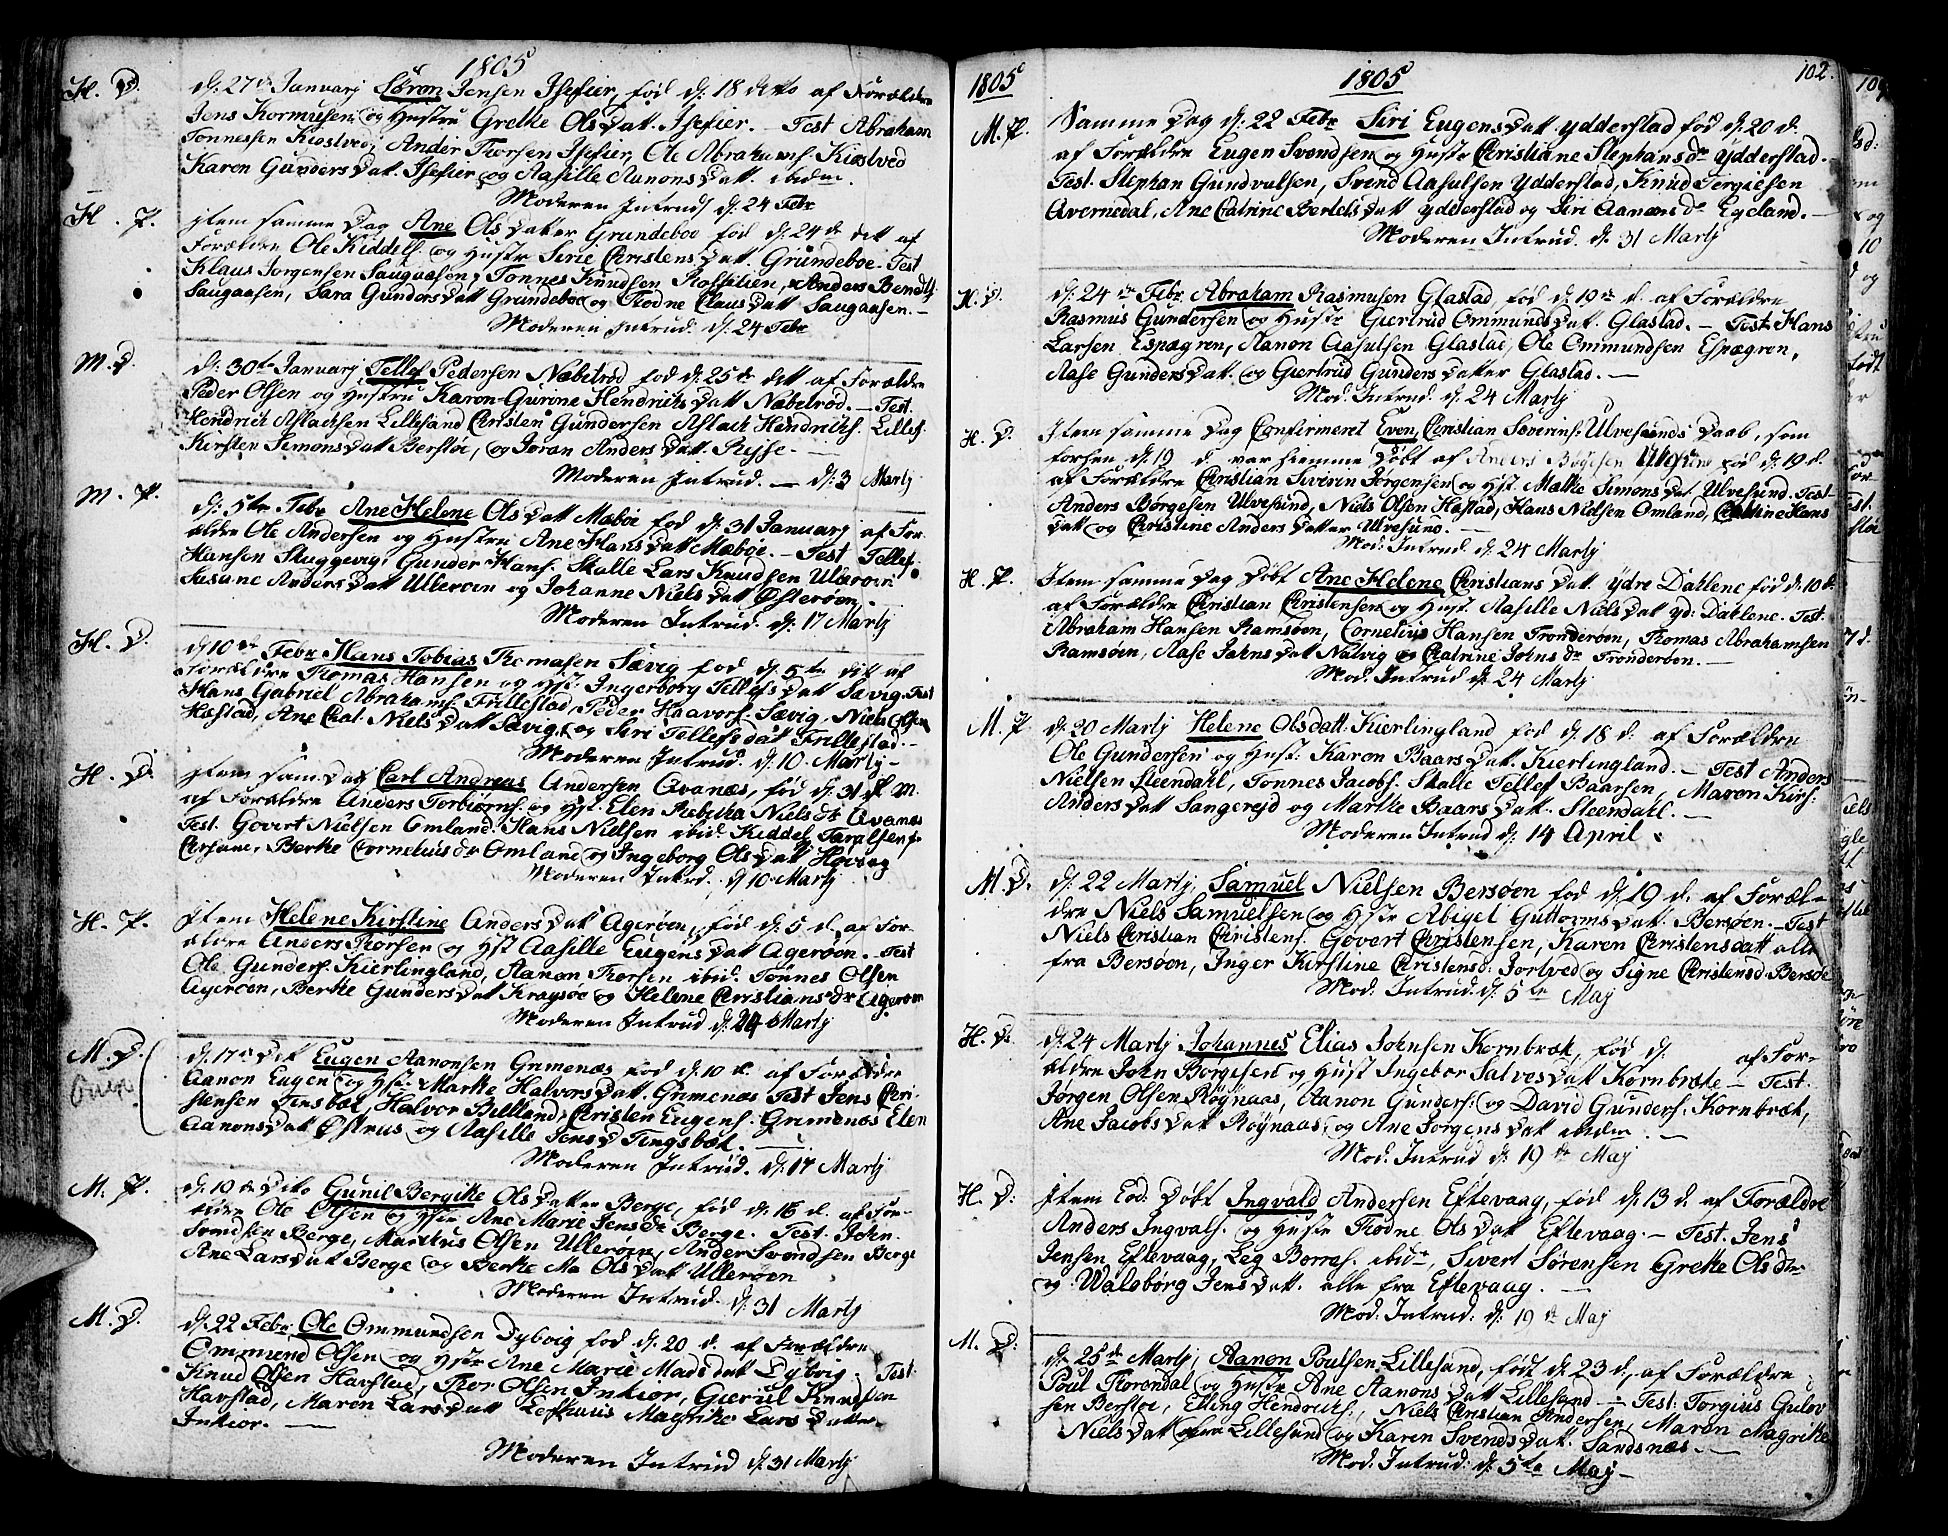 1805
H. D. d: 27de Januarj Søren Jensen Isefier, fød d: 18 dito af Forældre
Jens Kormusen og Hustru Grethe Olsdatt. Isefier. – Test Abraham
Tonnessen Kiostved, Anders Thorsen Isefier, Ole Abrahams. Kiostved
Karen Gundersdat. Isefier og Aasille Aanonsdatt. ibidm.
Moderen Introd d: 24 Febr
H. P. Item samme Dag Ane Olsdatter Grundeboe fød d: 24 d. dett af
Forældre Ole Kiddels. og Hustr Sirie Christensdat. Grundeboe. Test
Klaus Jorgensen Saugaasen, Tonnes Knudsen Rossilien, Anders Bendts
Saugaasen, Sara Gundersdatt Grundeboe og Thodne Clausdatt Saugaasen. –
Moderen Introd. d: 24 Febr
M. D. d: 30te Januarj Tellef Pedersen Næbelrod fød d: 25de dett af Forældre
Peder Olsen og Hustru Karen Gurine Hendrichsdatt Næbelrød. – Test.
Hendrich Aslachsen Lillesand Christen Gundersen Aslach Hendrichs. Lilles.
Kirsten Simonsdat Berstøe, og Joran Andersdatt. Rysse. –
Moderen Introd. – d: 3 Martj
M. P. d: 5te Febr Ane Helene Olsdatt Mæbøe fød d: 31 Januarj af For-
ældre Ole Andersen og Hustru Ane Hansdatt Mæbøe. – Test Tellef
Hansen Skuggevig, Gunder Hans. Skalle Lars Knudsen Ulleroen
Susane Andersdatt Ulleroen og Johanne Nielsdatt Østerøen.
Moderen Introd. d: 17 Martj
H. D. d 10de Febr Hans Tobias Thomasen Sævig fød d: 5te dett af
Forældre Thomas Hansen og Hst: Ingerborg Tellefsdatt Sævig. Test
Hans Gabriel Abrahams. Frillestad, Peder Haavors. Sævig, Niels Olsen
Hæstad, Ane Chat. Nielsdatt Sævig, og Siri Tellefsdat Frillestad. –
Moderen Introd. d: 10 Martj –
H. D. Item sam. Dag Carl Andreas Andersen Avanæs, fød d: 31 d. M.
af Forældre Anders Torbiørns. og Hst. Elen Rebecka Nielsdr Avanæs
Test. Govert Nielsen Omland. Hans Nielsen ibid. Kiddel Taralsen
Berthe Cornelius dr Omland og Ingeborg Olsdatt Høvaag
Moderen Introd. d 10 Martj
H. P. Item Helene Kirstine Andersdat Agerøen, fød d: 5 d. af For-
ældre Anders Thorsen og Hst Aasille Eugensdatt Agerøen. Test
Ole Gunders. Kierlingland, Aanon Thorsen ibid. Tønnes Olsen
Agerøen, Berthe Gundersdat Kragsøe og Helene Christians dr Agerøen
Moderen Introd d: 24 Martj
M. D. d: 17de Dett Eugen Aanonsen Grimenæs fød d: 10 d. af Forældre
Aanon Eugen. og Hstr Marthe Halvorsdatt. Grimenæs Test Jens Chri-
stensen Tinsbæk, Halvor Bielland, Christen Eugens. Grimenæs Elen
Aanonsdat Østhus og Aasille Jensd Tingsbæk. –
Moderen Introd. d: 17 Martj
M. P. d: 19de Dito Gunil Bergithe Olsdatter Berge, fød d: 16 d. af For-
ældre Ole Olsen og Hstr Ane Marie Jensdr Berge. Test. John
Svendsen Berge, Marthus Olsen Ullerøen, Ander Svendsen Berge
Ane Larsdatt Berge og Berthe Ma Olsdatt Ullerøen
Moderen Introd. d: 31 Martj
M. D. d: 22 Febr Ole Ommundsen Dybvig fød d: 20 d. af Forældre
Ommund Olsen og Hstr Ane Marie Madsdat Dybvig. Test
Knud Olsen Havstad, Thor Olsen Inkior, Gierul Knudsen
Havstad, Maren Larsdatt Magrithe Lars Datter
Inkior. –
Moderen Introd d: 31 Martj
1805
1805
102.
M. P. Samme Dag d: 22 Febr Siri Eugensdatt Ydderstad fød d: 20 d.
af Forældre Eugen Svendsen og Hustr Christiane Stephansdr Ydderstad.
Test. Stephan Gundvalsen, Svend Aasulsen Ydderstad, Knud Tergiesen
Avernedal, Ane Catrine Bertelsdatt Ydderstad og Siri Aanons dr Egeland. –
Moderen Introd. d: 31 Martj
H. D. d: 24de Febr Abraham Rasmusen Glastad fød d: 19de d. af Forældre
Rasmus Gundersen og Hustr Giertrud Ommundsdat. Glastad. – Test Hans
Larsen Espægren, Aanon Aasulsen Glastad, Ole Ommundsen Espægren,
Aase Gundersdat. og Giertrud Gundersdatter Glastad. –
Mod. Introd. d: 24 Martj
H. D. Item samme Dag Confirmeret Even Christian Severins. Ulvesunds Daab, som
forhen d: 19 d var hiemme Døbt af Anders Børgesen Ulvesund fød d: 19 d.
af Forældre Christian Siverin Jørgensen og Hst. Malle Simonsdat. Ulvesund. Test
Anders Børgesen Ulvesund, Niels Olsen Hæstad, Hans Nielsen Omland, Christine Hans
Datt og Christine Andersdatter Ulvesund. –
Mod: Introd. d: 24 Martj
H. P. Item samme Dag Døbt Ane Helene Christiansdatt. Ydre Dahlene fød d: 10 d.
af Forældre Christian Christensen og Hust. Aasille Nielsdat yd: Dahlene. Test.
Abraham Hansen Ramsøen, Cornelius Hansen Tronderøen, Thomas Abrahamsen
Ramsøen, Aase Jahnsdatt Natvig og Chatrine Johns dr Tronderøen. –
Mod. Introd d: 24 Martj
M. P. d: 20 Martj Helene Olsdatt. Kierlingland fød d: 18 d. af Forældre
Ole Gundersen og Hust. Karen Baarsdat. Kierlingland. – Test Anders
Nielsen Steendahl, Tonnes Jacobs. Skalle Tellef Baarsen, Maren Kirs.
Andersdatt Sangereid og Marthe Baarsdat. Steendahl. –
Moderen Introd d: 14 April
M. D. d: 22 Martj, Samuel Nielsen Bersøen fød d: 19 d. af Foræl-
dre Niels Samuelsen og Hstr Abigel Guttormsdat. Bersøen. – Test
Niels Christian Christens. Govert Christensen, Karen Christensdatt alle
fra Bersøen, Inger Kirstine Christensd: Jortved og Signe Christensd Bersøe
Mod: Introd. d: 5te Maj
H. D. d: 24 Martj Johannes Elias Johnsen Kornbræk, fød d: af For-
ældre John Børgesen og Hust Ingebor Salvesdatt Kornbræke – Test.
Jørgen Olsen Røynaas, Aanon Gunders: og David Gunders. Kornbræk,
Ane Jacobsdat Røynaas og Ane Jorgensdatt ibidm. –
Mod. Introd d: 19de Maj
H. D: Item Eod: Døbt Ingvald Andersen Eftevaag, fød d: 13 d. af Forældre
Anders Ingvals. og Hustr Thodne Olsdat Eftevaag. – Test. Jens
Jensen Eftevaag, Leg Borres. ibidm, Sivert Sørensen Grethe Olsdr
og Walsborg Jensdat. alle fra Eftevaag. –
Mod: Introd: d: 19de Maj
M. D: d: 25de Martj, Aanon Poulsen Lillesand, født d: 23 d., af Forældre
Poul Thorendal og Hustr Ane Aanonsdatt Lillesand – Test: Torgius Gulov
sen Berstøe, Elling Hendrichs., Niels Christian Andersen, Maren Magrithe
Nielsdatt fra Lillesand og Karen Svendsdat. Sandsnæs. –
Mod: Introd: d: 5te Maj –